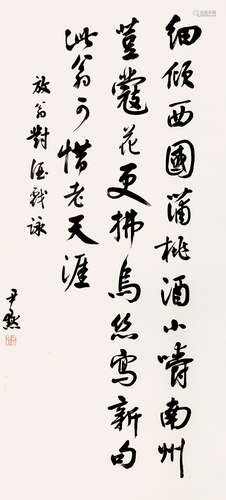 细倾西國蒲桃酒小嚼南州
荳蔻花更拂烏丝寫新句
此翁可惜老天涯
放翁對酒戲詠
尹默